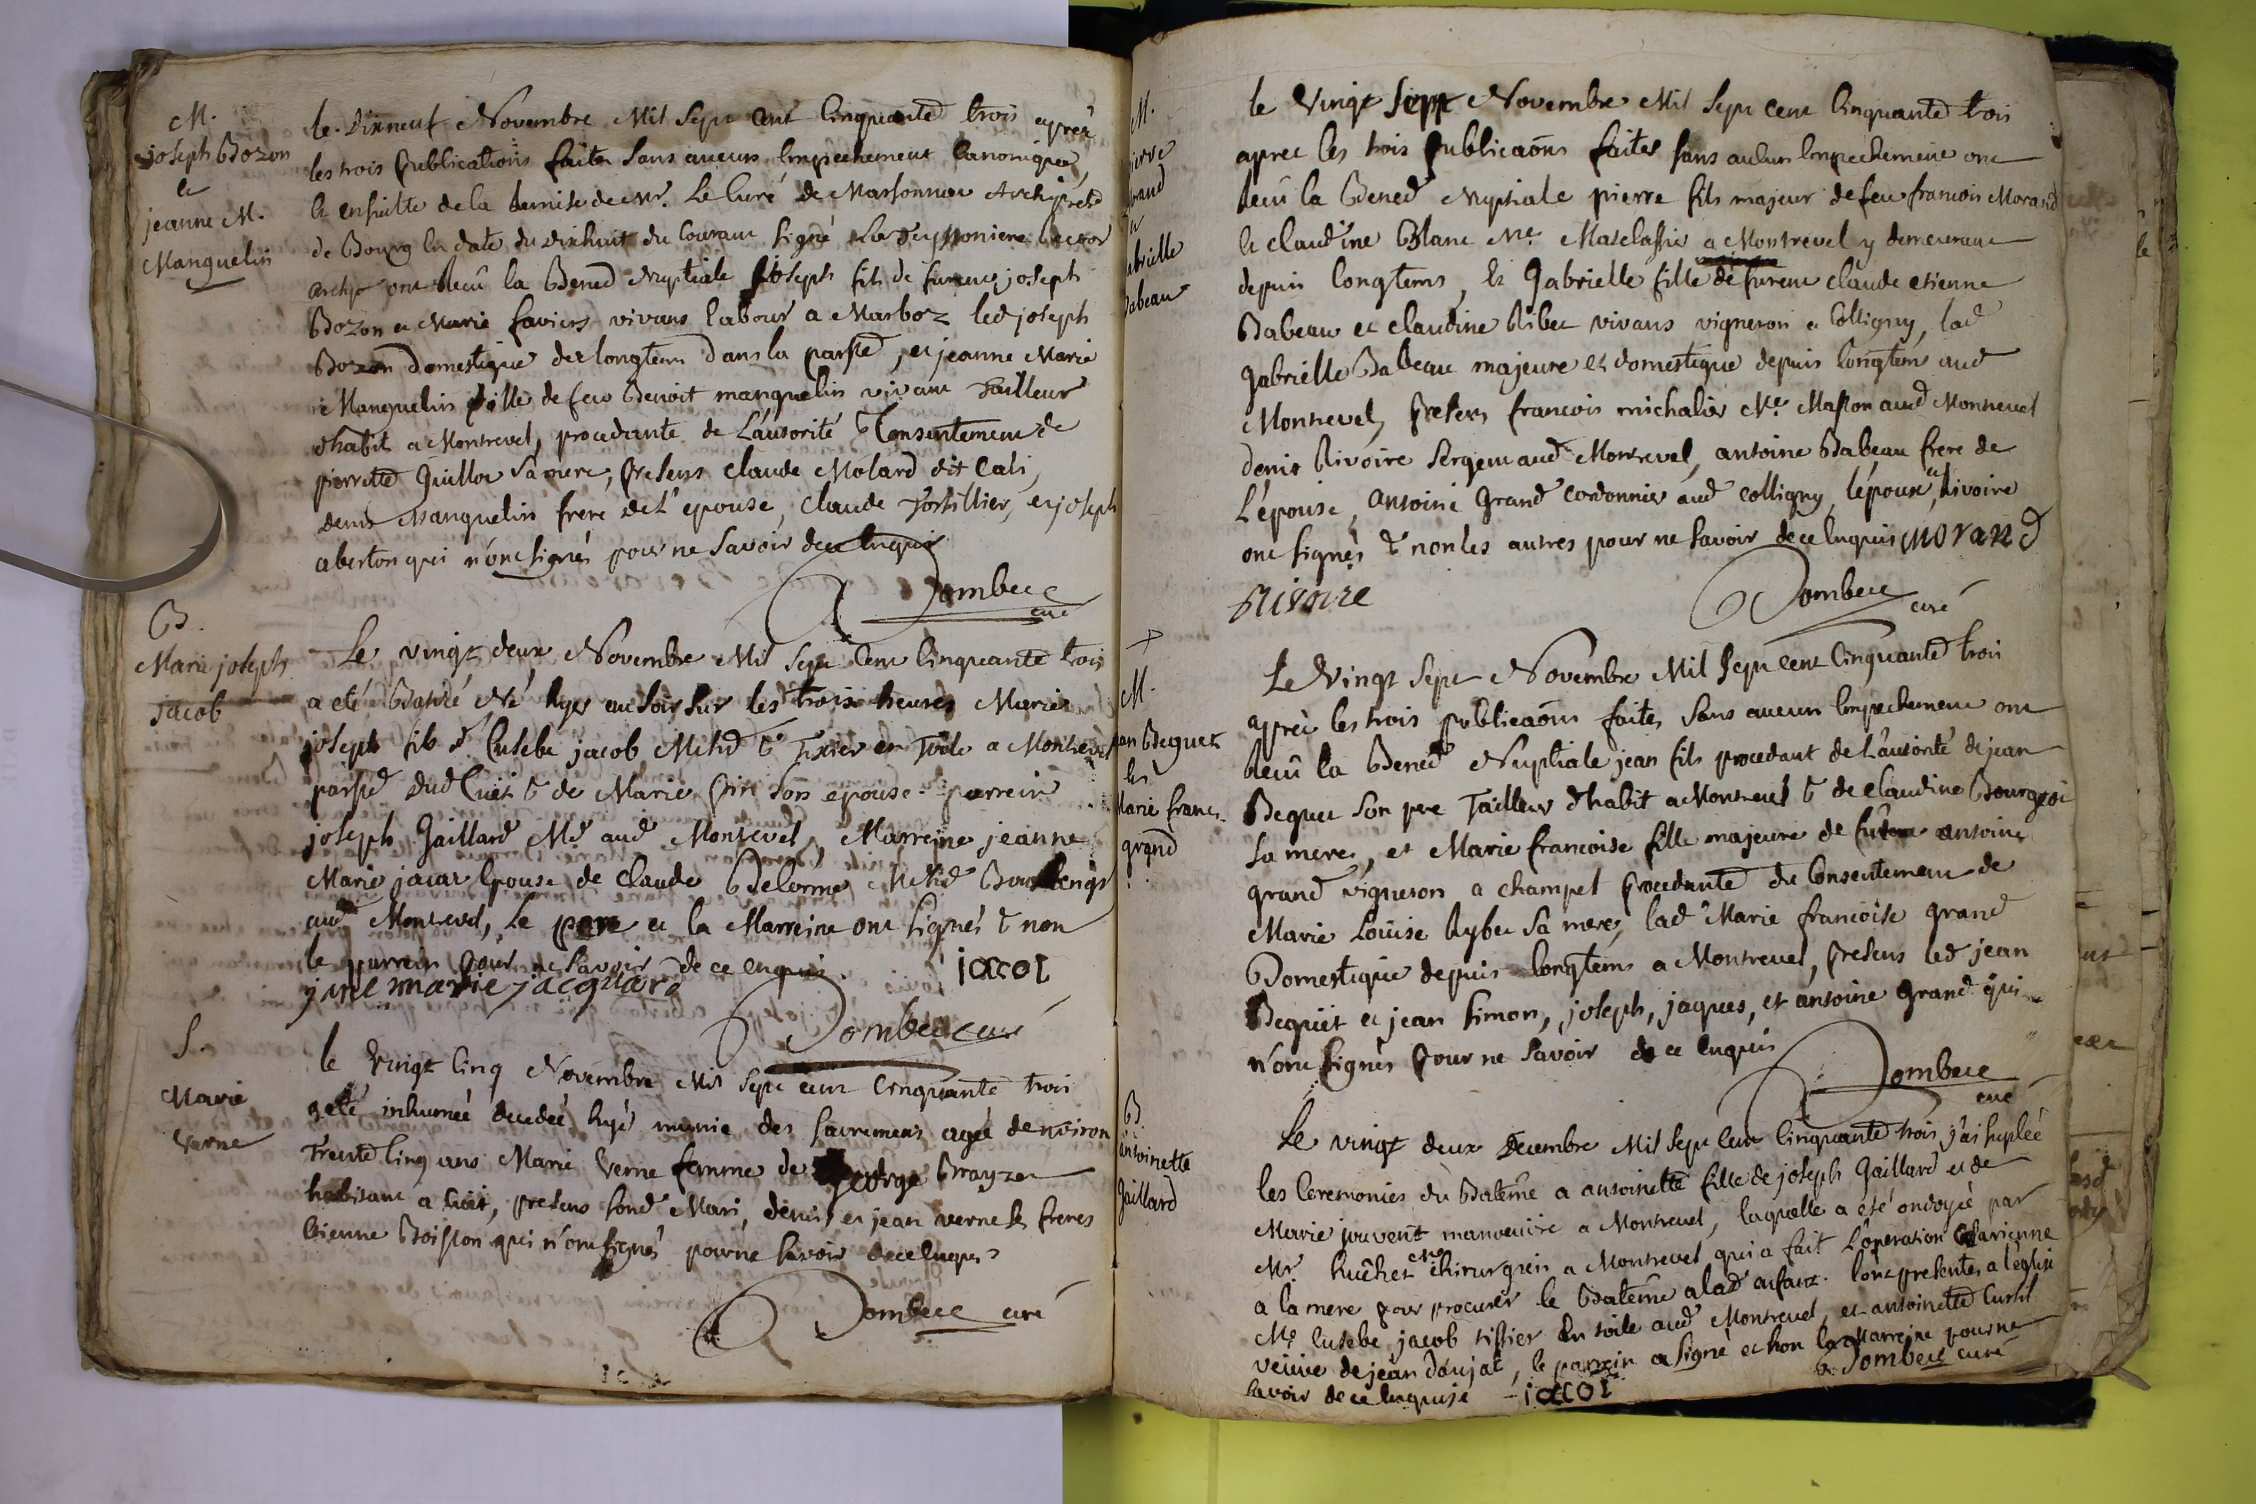 M.
joseph Bozon
et
jeanne M.
Manguelin
le. Dixneuf Novembre Mil Sept Cent Cinquante trois après
les trois publications faites sans aucun Empechement Canonique,
et ensuitte de la Remise de Mr. Le Curé de Marsonnas Archiprêtre
de Bourg en date du dixhuit du Courant signé
archip. ont Reçû la Bened. Nuptiale Joseph fils de furent joseph
Bozon et Marie favier vivans labour. a Marboz led joseph
Bozon domestique dez longtem dans la parsse, et jeanne Marie
Manguelin fille de feu Benoit manguelin vivant Tailleur
d'habit a Montrevel, procedante de L'autorité & Consentement de
pierrette Guillot sa mere, presens Claude Molard dit Cali,
denis Manguelin frere de L'epouse, Claude Tortillier, et joseph
aberton qui n'ont signés pour ne savoir de ce Enquis
Dombecc
curé
B.
Marie joseph
jacob
Le vingt deux Novembre Mil sept Cent Cinquante trois
a eté Batisé Né hyer au soir sur les trois heures Marie
joseph fils d'Eusebe jacob Mchd & Tixier en Toile a Montrevel
parsse dud Cuet & de Marie son epouse. parrein
joseph Gaillard Md. aud Montrevel, Marreine jeanne
Marie jacar Epouse de Claude Delorme Mchd Boulenger
aud Montrevel, Le pere et la Marreine ont signés & non
le parrein pour ne savoir de ce enquis. jacob
jane marie jacquard
Dombecc curé
S.
Marie
Verne
le Vingt Cinq Novembre Mil Sept cent Cinquante trois
a eté inhumée decedée hyé munie des sacremens agée d'environ
Trente Cinq ans Marie Verne femme de George Brayzet
habitant a Cuet, presens sond Mari, denis et jean verne ses freres
Etienne Boisson qui n'ont signés pour ne savoir de ce Enquis
Dombecc curé
M.
pierre
Morand
et
gabrielle
Babeau
le Vingt Sept Novembre Mil Sept cent Cinquante trois
aprec les trois publicaõns faites sans aucun Empechement ont
Reçû la Bened Nuptiale pierre fils majeur de feu francois Morand
et claudine Blanc Me. Matelassier a Montrevel y demeurant
depuis longtems, et Gabrielle fille de furent claude etienne
Babeau et claudine Ribet vivans vigneron a Colligny, lad
Gabrielle Babeau majeure et domestique depuis longtem aud
Montrevel, presens francois michalet Me. Masson aud Montrevel
denis Rivoire sergent aud Montrevel, antoine Babeau frere de
L'épouse, antoine Grand cordonnier aud colligny, l'époux, et Rivoire
ont signés & non les autres pour ne savoir de ce Enquis MORAND
RIVOIRE
Dombecc
curé
M.
jean Bequet
et
Marie franc.
grand
Le Vingt Sept Novembre Mil Sept cent Cinquante trois
après les trois publicaõns faites sans aucun Empechement ont
Reçû la Bened Nuptiale jean fils procedant de L'autorité de jean
Bequet son pere Tailleur d'habit a Montrevel & de claudine Bourgeois
sa mere, et Marie francoise fille majeure de antoine
grand vigneron a champel procedante du Consentement de
Marie Loüise Rybet sa mere, lad Marie francoise grand
Domestique depuis longtems a Montrevel, presens led jean
Bequet et jean simon, joseph, jaques, et antoine grand qui
n'ont signés pour ne savoir de ce Enquis
Dombecc
curé
B.
antoinette
Gaillard
Le vingt deux Decembre Mil Sept Cent Cinquante trois j'ai suplée
les Ceremonies du Batême a antoinette fille de joseph Gaillard et de
Marie jouvent manouvire a Montrevel, laquelle a été ondoyée par
Mr huchet Me chirurgien a Montrevel qui a fait L'operation Cesarienne
a la mere pour procurer le Batême a lad enfant. l'ont presentée a l'eglise
Me. Eusebe jacob tissier en toile aud Montrevel, et antoinette Curtil
veuve de jean doujat, le parrein a signé et non la Marreine pour ne
savoir de ce Enquise jacob Dombecc curé